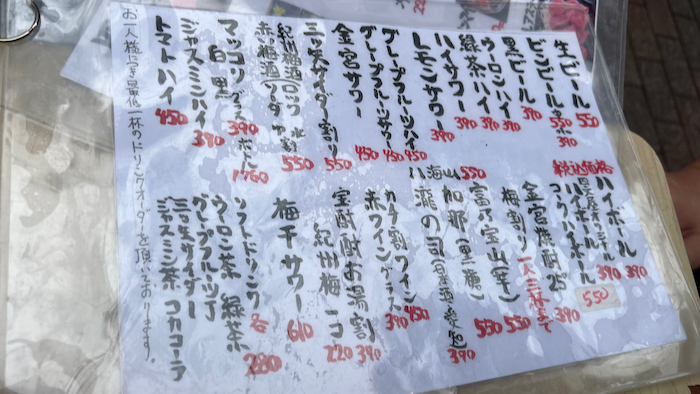 生ビール 550
ビンビール 550
黒ビール 390
ウーロンハイ 390
緑茶ハイ 390
ハイサワー 390
レモンサワー 390
グレープフルーツハイ 450
グレープフルーツサワー 450
金宮サワー 450
三ツ矢サイダー割り 550
紀州梅酒ロック 水割 550
赤梅酒ソーダ
マッコリグラス 390 ボトル 1760
白 黒
ジャスミンハイ 390
トマトハイ 450
お一人様につき最低一杯のドリンクオーダーを頂いております。
税込価格
ハイボール 390
ハイボール 390
コークハイボール 550
金宮焼酎25° 390
梅割り 一人三杯まで 550
富乃宝山(芋) 550
八海山 550
加那(黒糖)
390
赤ワイングラス 390
カチ割ワイン 450
宝酎酎お湯割 390
紀州梅一コ 220
梅干サワー 610
ソフトドリンク 各280
ウーロン茶 緑茶
グレープフルーツJ
三ツ矢サイダー
ジャスミン茶 コカコーラ